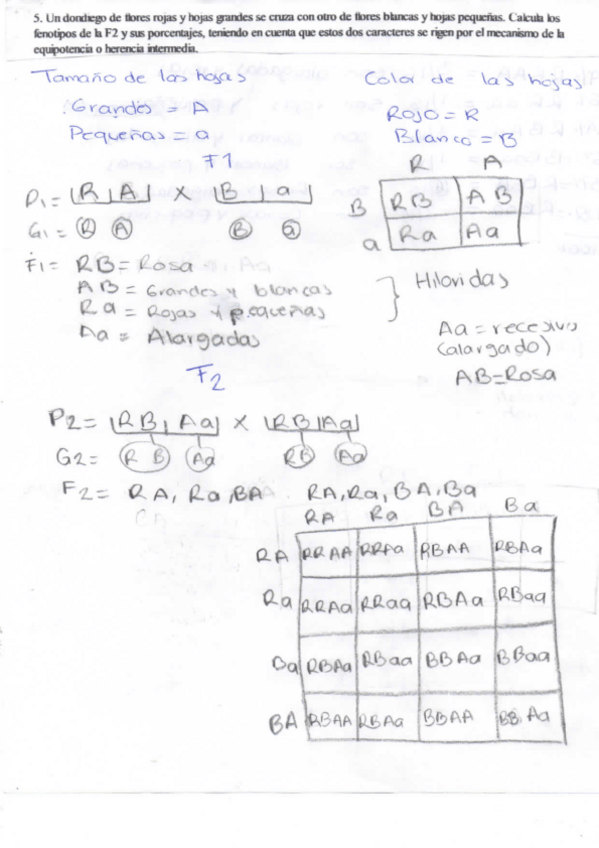 5. Un dondiego de flores rojas y hojas grandes se cruza con otro de flores blancas y hojas pequeñas. Calcula los
fenotipos de la F2 y sus porcentajes, teniendo en cuenta que estos dos caracteres se rigen por el mecanismo de la
equipotencia o herencia intermedia.
Tamaño de las hojas
Color de las hojas
Grandes = A
Rojo = R
Pequeñas = a
Blanco = B
F1
R A
P1 = R A X B a
B RB AB
G1 = R A B a
a Ra Aa
F1 = RB = Rosa
AB = Grandes y blancas
Ra = Rojas y pequeñas
Aa = Alargadas
Hibridas
Aa = recesivo
(alargado)
AB = Rosa
F2
P2 = RB Aa X RB Aa
G2 = R B Aa RB Aa
F2 = RA, Ra, BA RA, Ra, BA, Ba
RA Ra BA Ba
RA RRAA RRAa RBAA RBAa
Ra RRAa RRaa RBAa RBaa
Ba RBAa RBaa BBAa BBaa
BA RBAA RBAa BBAA BB Aa